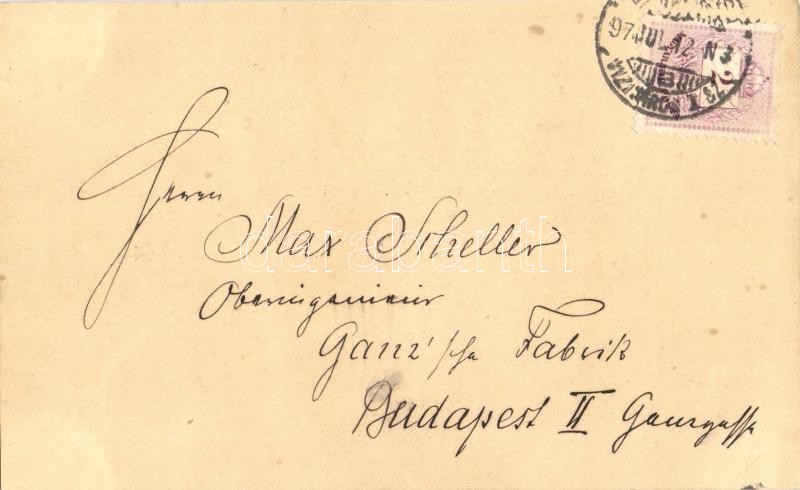 97 JUL 12 N3
2
Herrn
Max Scheller
Oberingenieur
Ganz'sche Fabrik
Budapest II Ganzgasse
darabanth